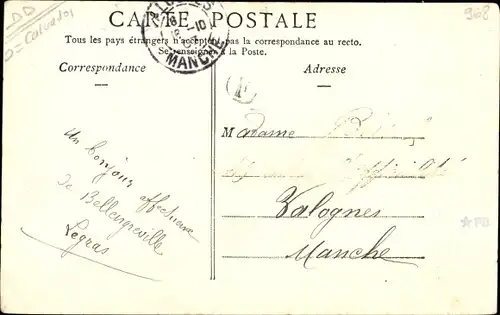 DD
D=Calvados
968
CARTE POSTALE
Tous les pays étrangers n'acceptent pas la correspondance au recto.
Se renseigner à la Poste.
Correspondance
Adresse
MANCHE
E
Madame
Un bonjour affectueux
de Bellengreville
Legras
Valognes
Manche